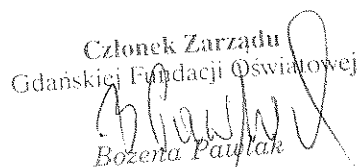 Członek Zarządu
Gdańskiej Fundacji Oświatowej
Bożena Pawlak